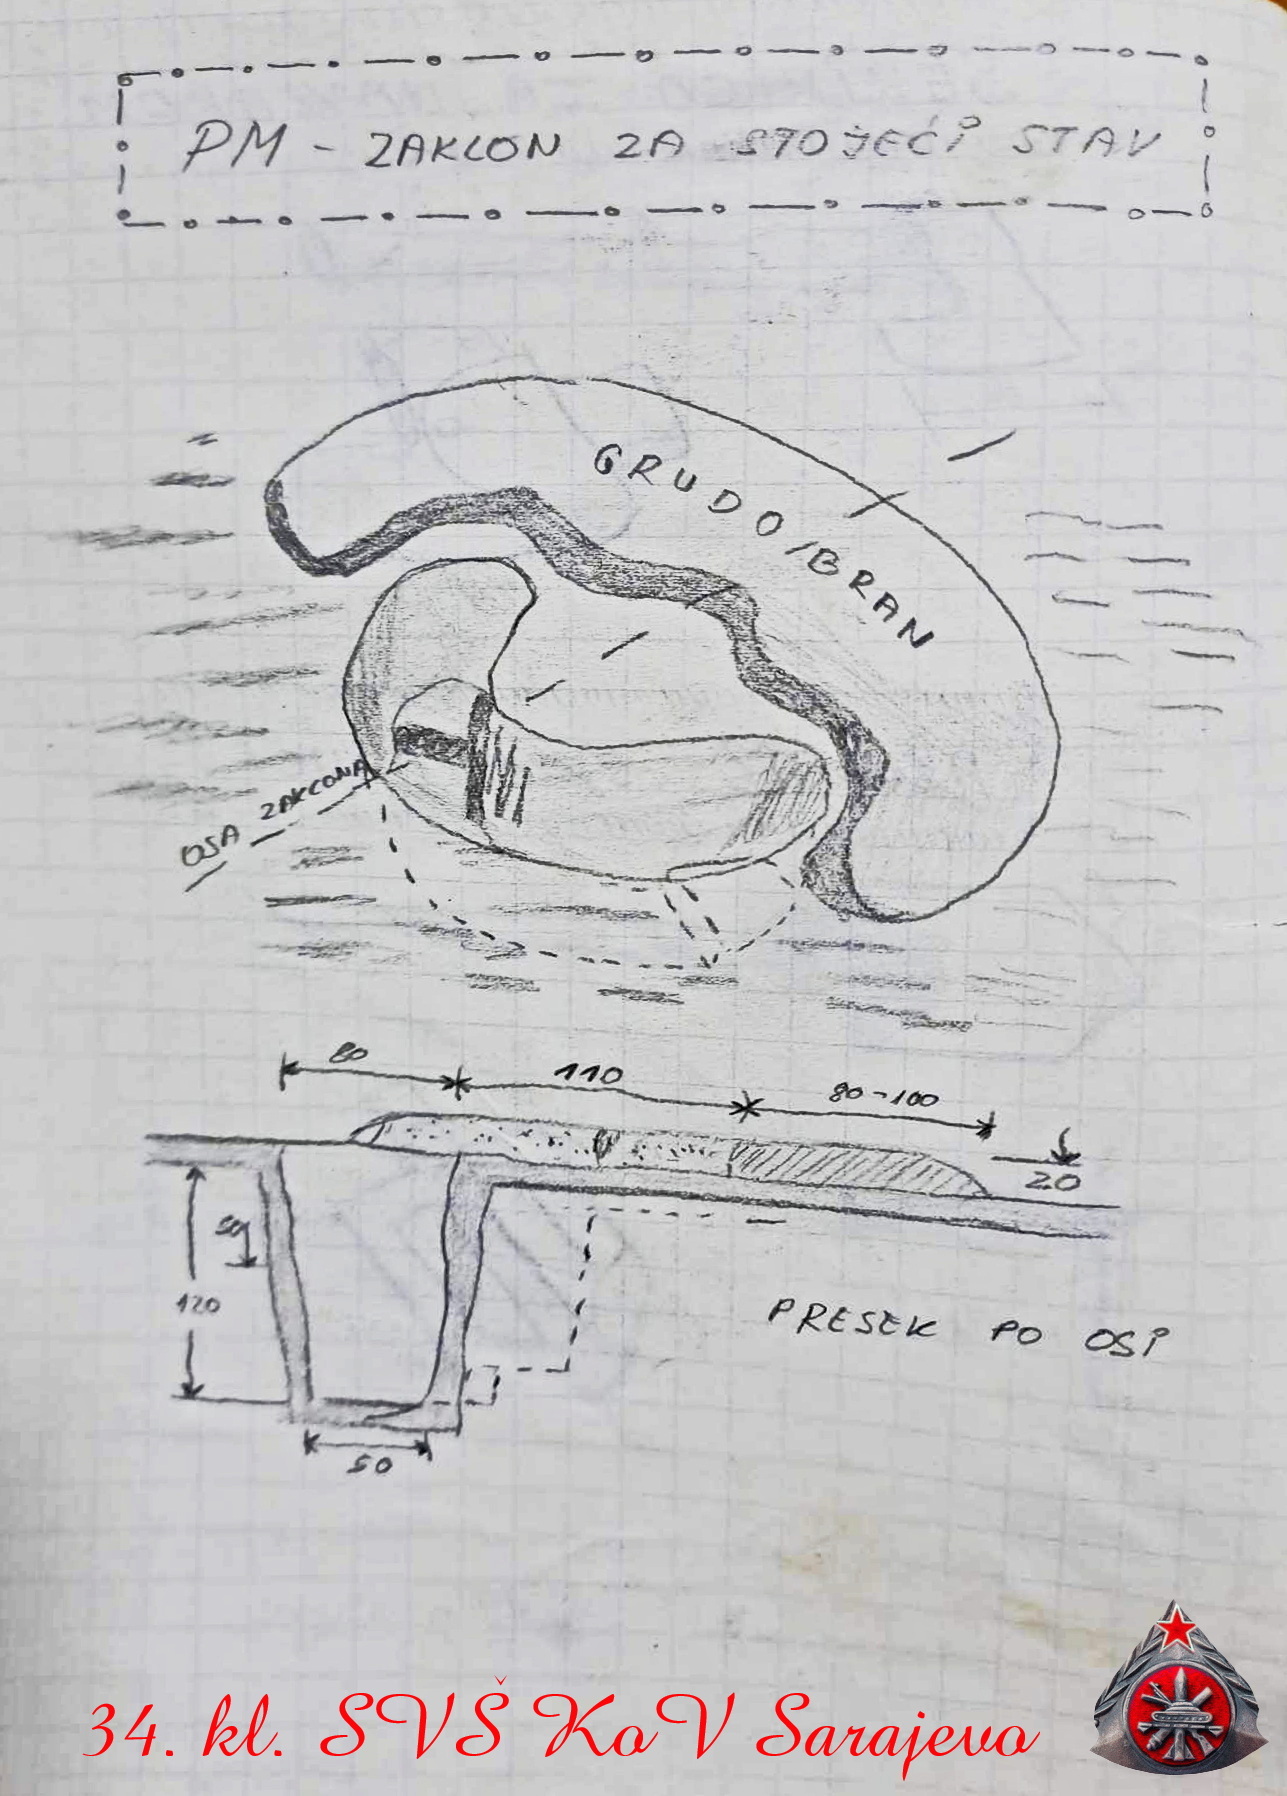 PM - ZAKLON ZA STOJEĆI STAV
GRUDO/BRAN
OSA ZAKLONA
80
110
80-100
20
120
50
PRESEK PO OSI
34. kl. SVŠ KoV Sarajevo